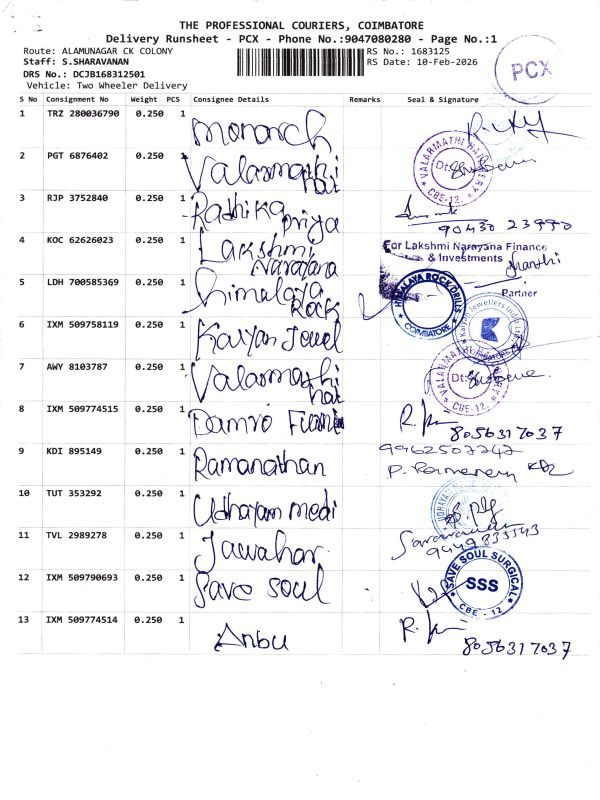 THE PROFESSIONAL COURIERS, COIMBATORE
Delivery Runsheet - PCX - Phone No.:9047080280 - Page No.:1
Route: ALAMUNAGAR CK COLONY
RS No.: 1683125
Staff: S.SHARAVANAN
RS Date: 10-Feb-2026
DRS No.: DCJB168312501
Vehicle: Two Wheeler Delivery
PCX
S No Consignment No Weight PCS Consignee Details Remarks Seal & Signature
1 TRZ 280036790 0.250 1 Monarch
2 PGT 6876402 0.250 1 Valarmathi
VALARMATHI
CBE-12.
3 RJP 3752840 0.250 1 Radhika priya
90430 23990
4 KOC 62626023 0.250 1 Lakshmi Narayana
For Lakshmi Narayana Finance
& Investments
Shanthi
Partner
5 LDH 700585369 0.250 1 himalaya Rock
HIMALAYA ROCK DRILLS
COIMBATORE
6 IXM 509758119 0.250 1 Kalyan Jewel
Kalyan Jewellers India Ltd
7 AWY 8103787 0.250 1 Valarmathi
VALARMATHI
CBE-12.
8 IXM 509774515 0.250 1 Damro Furni
8056317037
9 KDI 895149 0.250 1 Ramanathan
10 TUT 353292 0.250 1 Udhayam medi
11 TVL 2989278 0.250 1 Jawahar
12 IXM 509790693 0.250 1 Save soul
SAVE SOUL SURGICAL
SSS
CBE - 12
13 IXM 509774514 0.250 1 Anbu
8056317037